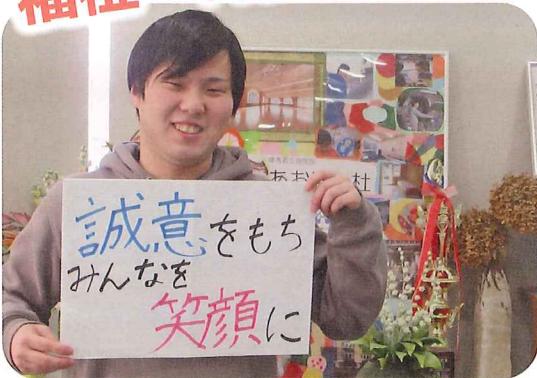 福祉
誠意をもち
みんなを
笑顔に